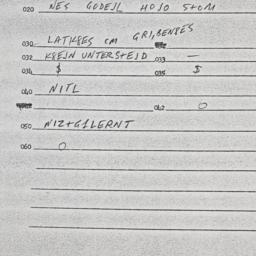 020 NES GODEJL HOJO STOM
030 LATKEES CM GRI,BENTES
032 KREJN UNTERSTEJD 033 —
034 $ 035 $
040 NITL
042 0
050 NIZ+G1LERNT
060 0